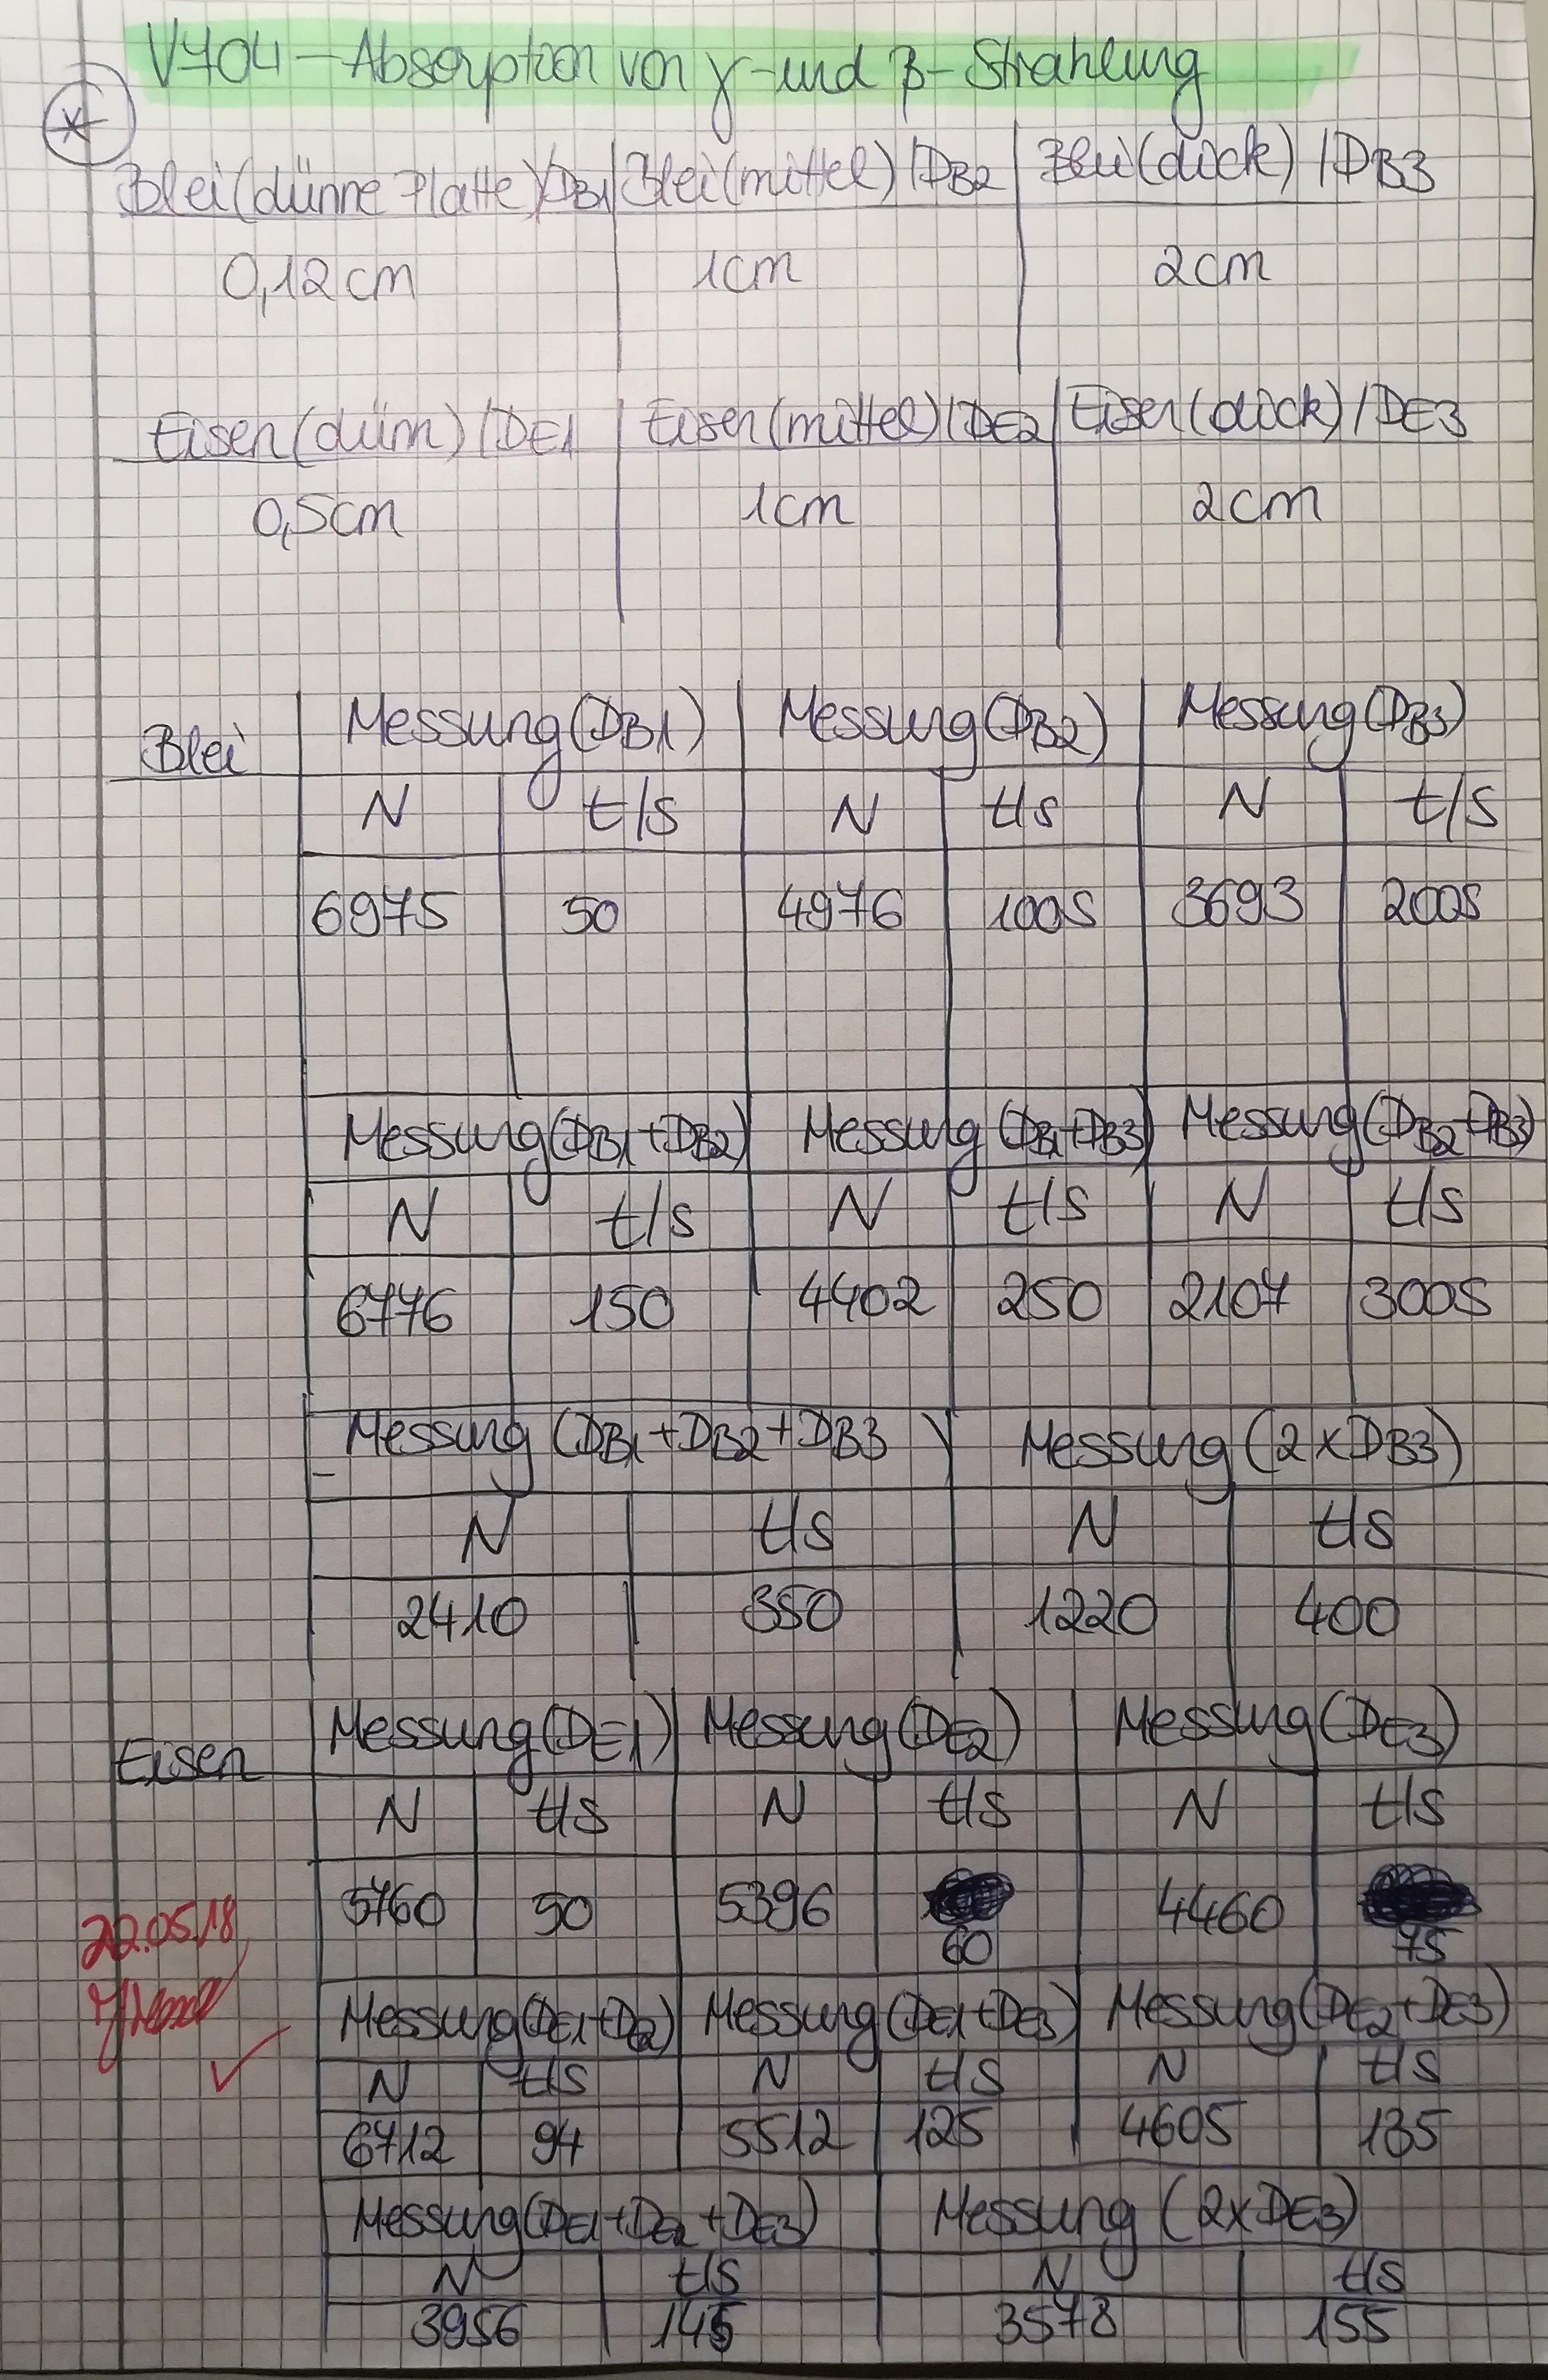 V704 – Absorption von γ- und β-Strahlung
*
Blei (dünne Platte)/DB1 | Blei (mittel)/DB2 | Blei (dick)/DB3
0,12cm | 1cm | 2cm
Eisen (dünn)/DE1 | Eisen (mittel)/DE2 | Eisen (dick)/DE3
0,5cm | 1cm | 2cm
Blei | Messung (DB1) | Messung (DB2) | Messung (DB3)
N | t/s | N | t/s | N | t/s
6975 | 50 | 4976 | 100s | 3693 | 200s
Messung (DB1+DB2) | Messung (DB1+DB3) | Messung (DB2+DB3)
N | t/s | N | t/s | N | t/s
6776 | 150 | 4402 | 250 | 2107 | 300s
Messung (DB1+DB2+DB3) | Messung (2xDB3)
N | t/s | N | t/s
2410 | 350 | 1220 | 400
Eisen | Messung (DE1) | Messung (DE2) | Messung (DE3)
N | t/s | N | t/s | N | t/s
5760 | 50 | 5396 | 60 | 4460 | 75
22.05.18
Messung (DE1+DE2) | Messung (DE1+DE3) | Messung (DE2+DE3)
N | t/s | N | t/s | N | t/s
6712 | 94 | 5512 | 125 | 4605 | 135
Messung (DE1+DE2+DE3) | Messung (2xDE3)
N | t/s | N | t/s
3956 | 145 | 3578 | 155